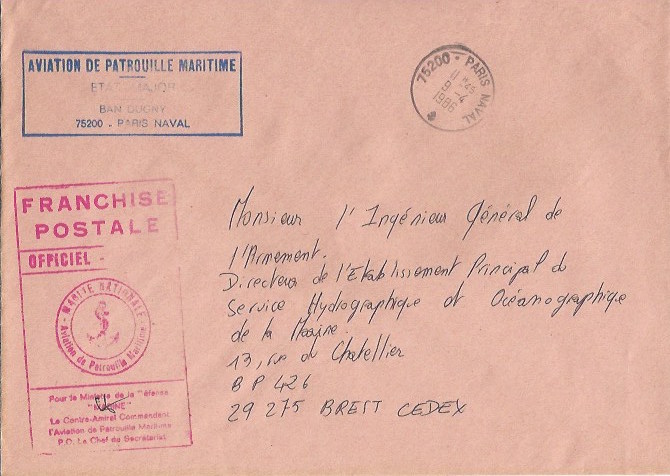 AVIATION DE PATROUILLE MARITIME
ETAT MAJOR
BAN DUGNY
75200 - PARIS NAVAL
75200 - PARIS NAVAL
11 H45
9 -4
1986
FRANCHISE
POSTALE
OFFICIEL -
MARINE NATIONALE
Aviation de Patrouille Maritime
Pour le Ministre de la Défense
"MARINE"
Le Contre-Amiral Commandant
l'Aviation de Patrouille Maritime
P.O. Le Chef du Secrétariat
Monsieur l'Ingénieur Général de
l'Armement.
Directeur de l'Etablissement Principal du
Service Hydrographique et Océanographique
de la Marine.
13, rue du Chatellier
B P 426
29 275 BREST CEDEX